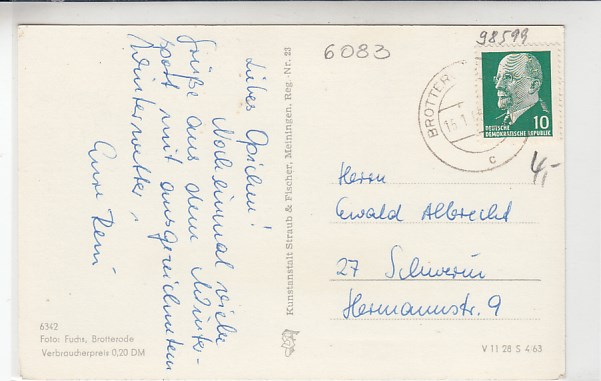 Liebes Opichen!
Noch einmal viele
Grüße aus dem Winter-
sport mit ausgezeichnetem
Winterwetter,
Eure Reni
6342
Foto: Fuchs, Brotterode
Verbraucherpreis 0,20 DM
Kunstanstalt Straub & Fischer, Meiningen, Reg.-Nr. 23
6083
98599
BROTTER
15.1.6
c
10
DEUTSCHE
DEMOKRATISCHE REPUBLIK
4,-
Herrn
Ewald Albrecht
27 Schwerin
Hermannstr. 9
V 11 28 S 4/63